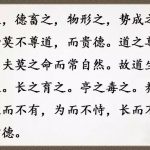 ，德畜之，物形之，势成之
莫不尊道，而贵德。道之尊
夫莫之命而常自然。故道生
。长之育之。亭之毒之。养
而不有，为而不恃，长而不
德。